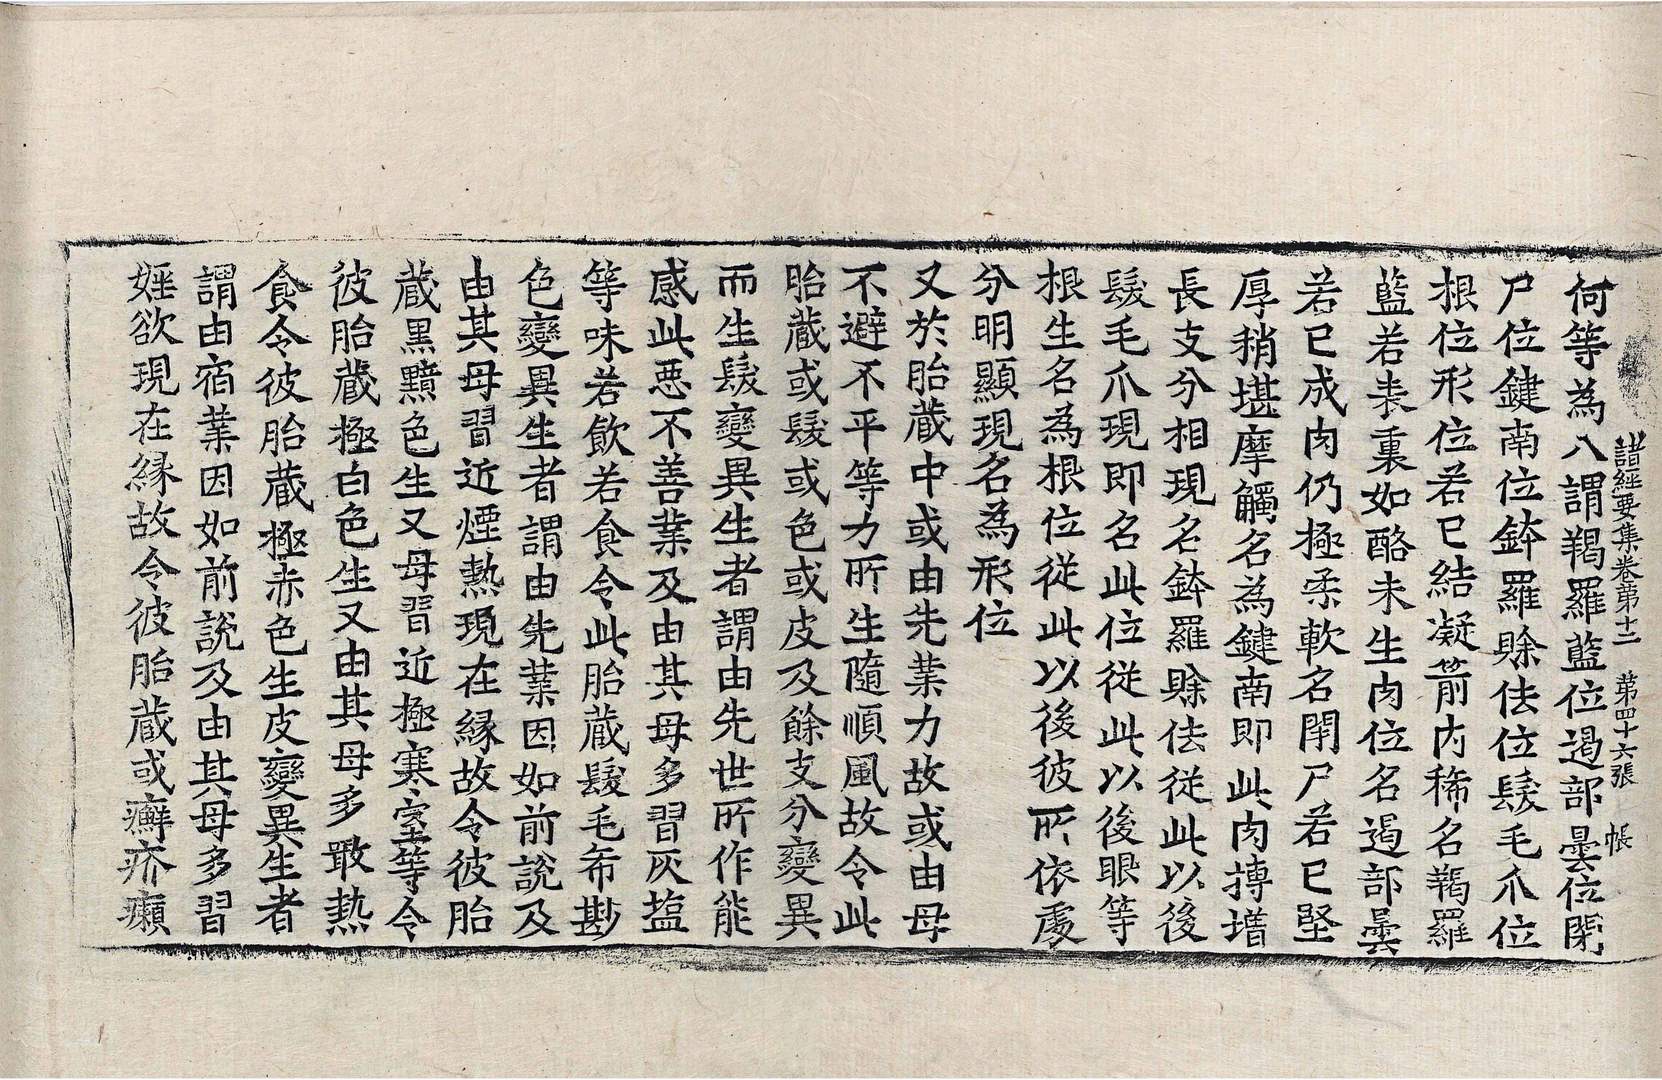 諸經要集卷第十二　第四十六張　帳
何等為八謂羯羅藍位遏部曇位閉
尸位鍵南位鉢羅賒佉位髮毛爪位
根位形位若已結凝箭內稀名羯羅
藍若表裏如酪未生肉位名遏部曇
若已成肉仍極柔軟名閇尸若已堅
厚稍堪摩觸名為鍵南即此肉摶增
長支分相現名鉢羅賒佉從此以後
髮毛爪現即名此位從此以後眼等
根生名為根位從此以後彼所依處
分明顯現名為形位
又於胎藏中或由先業力故或由母
不避不平等力所生隨順風故令此
胎藏或髮或色或皮及餘支分變異
而生髮變異生者謂由先世所作能
感此惡不善業及由其母多習灰塩
等味若飲若食令此胎藏髮毛希尠
色變異生者謂由先業因如前說及
由其母習近煙熱現在緣故令彼胎
藏黑黶色生又母習近極寒室等令
彼胎藏極白色生又由其母多噉熱
食令彼胎藏極赤色生皮變異生者
謂由宿業因如前說及由其母多習
婬欲現在緣故令彼胎藏或癬疥癩